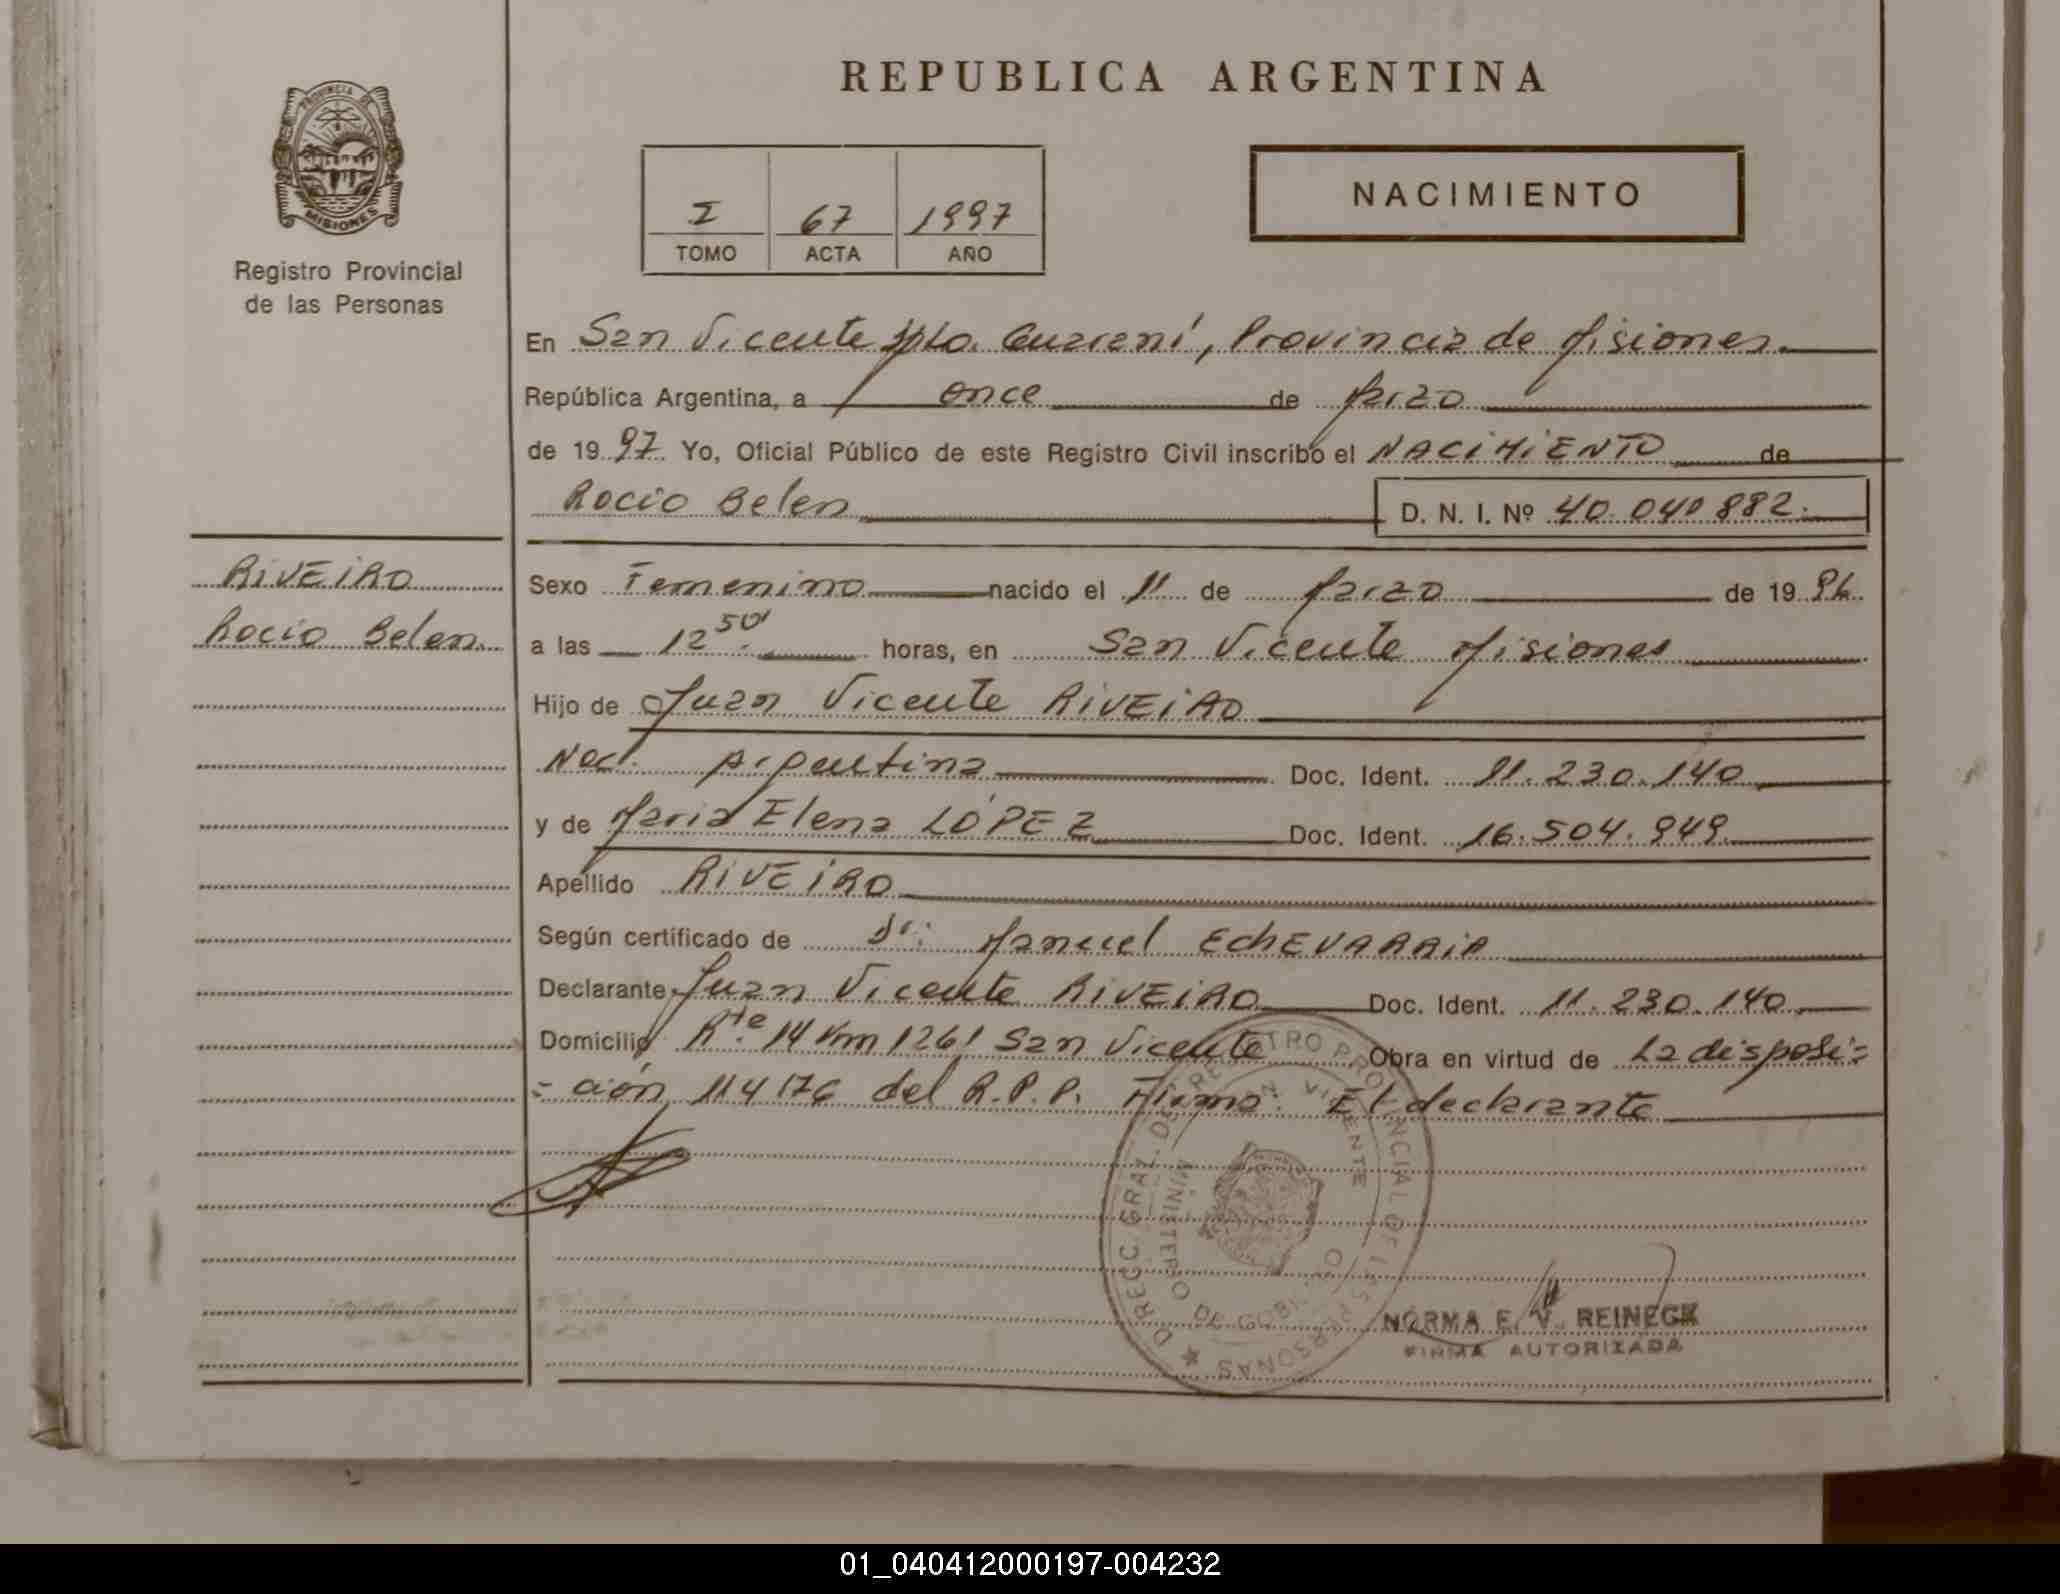 REPUBLICA ARGENTINA
PROVINCIA DE
MISIONES
Registro Provincial
de las Personas
I 67 1997
TOMO ACTA AÑO
NACIMIENTO
En San Vicente Dpto. Guarani, Provincia de Misiones.
República Argentina, a once de Marzo
de 1997. Yo, Oficial Público de este Registro Civil inscribo el NACIMIENTO de
Rocio Belen D. N. I. Nº 40.040.882.
RIVEIRO
Rocio Belen.
Sexo Femenino nacido el 11 de Marzo de 1996.
a las 12.50' horas, en San Vicente Misiones
Hijo de Juan Vicente RIVEIRO
Nac. Argentina Doc. Ident. 11.230.140
y de Maria Elena LÓPEZ Doc. Ident. 16.504.949.
Apellido RIVEIRO
Según certificado de Dr. Manuel ECHEVARRIA
Declarante Juan Vicente RIVEIRO Doc. Ident. 11.230.140.
Domicilio Rte. 14 Km 1261 San Vicente Obra en virtud de La disposi=
=ción 114176 del R.P.P. Firma: El declarante
DIRECC. GRAL. DEL REGISTRO PROVINCIAL DE LAS PERSONAS
SAN VICENTE
MINISTERIO DE GOBIERNO
NORMA E. V. REINECK
FIRMA AUTORIZADA
01_040412000197-004232